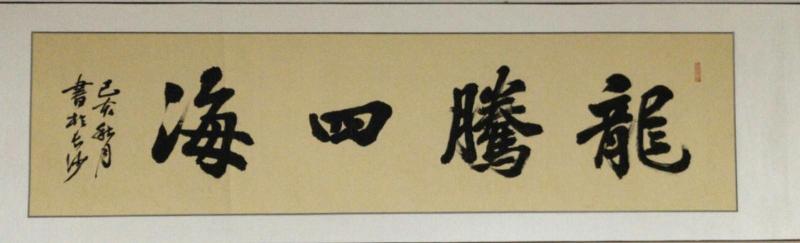 龍騰四海
己亥秋月
書於长沙